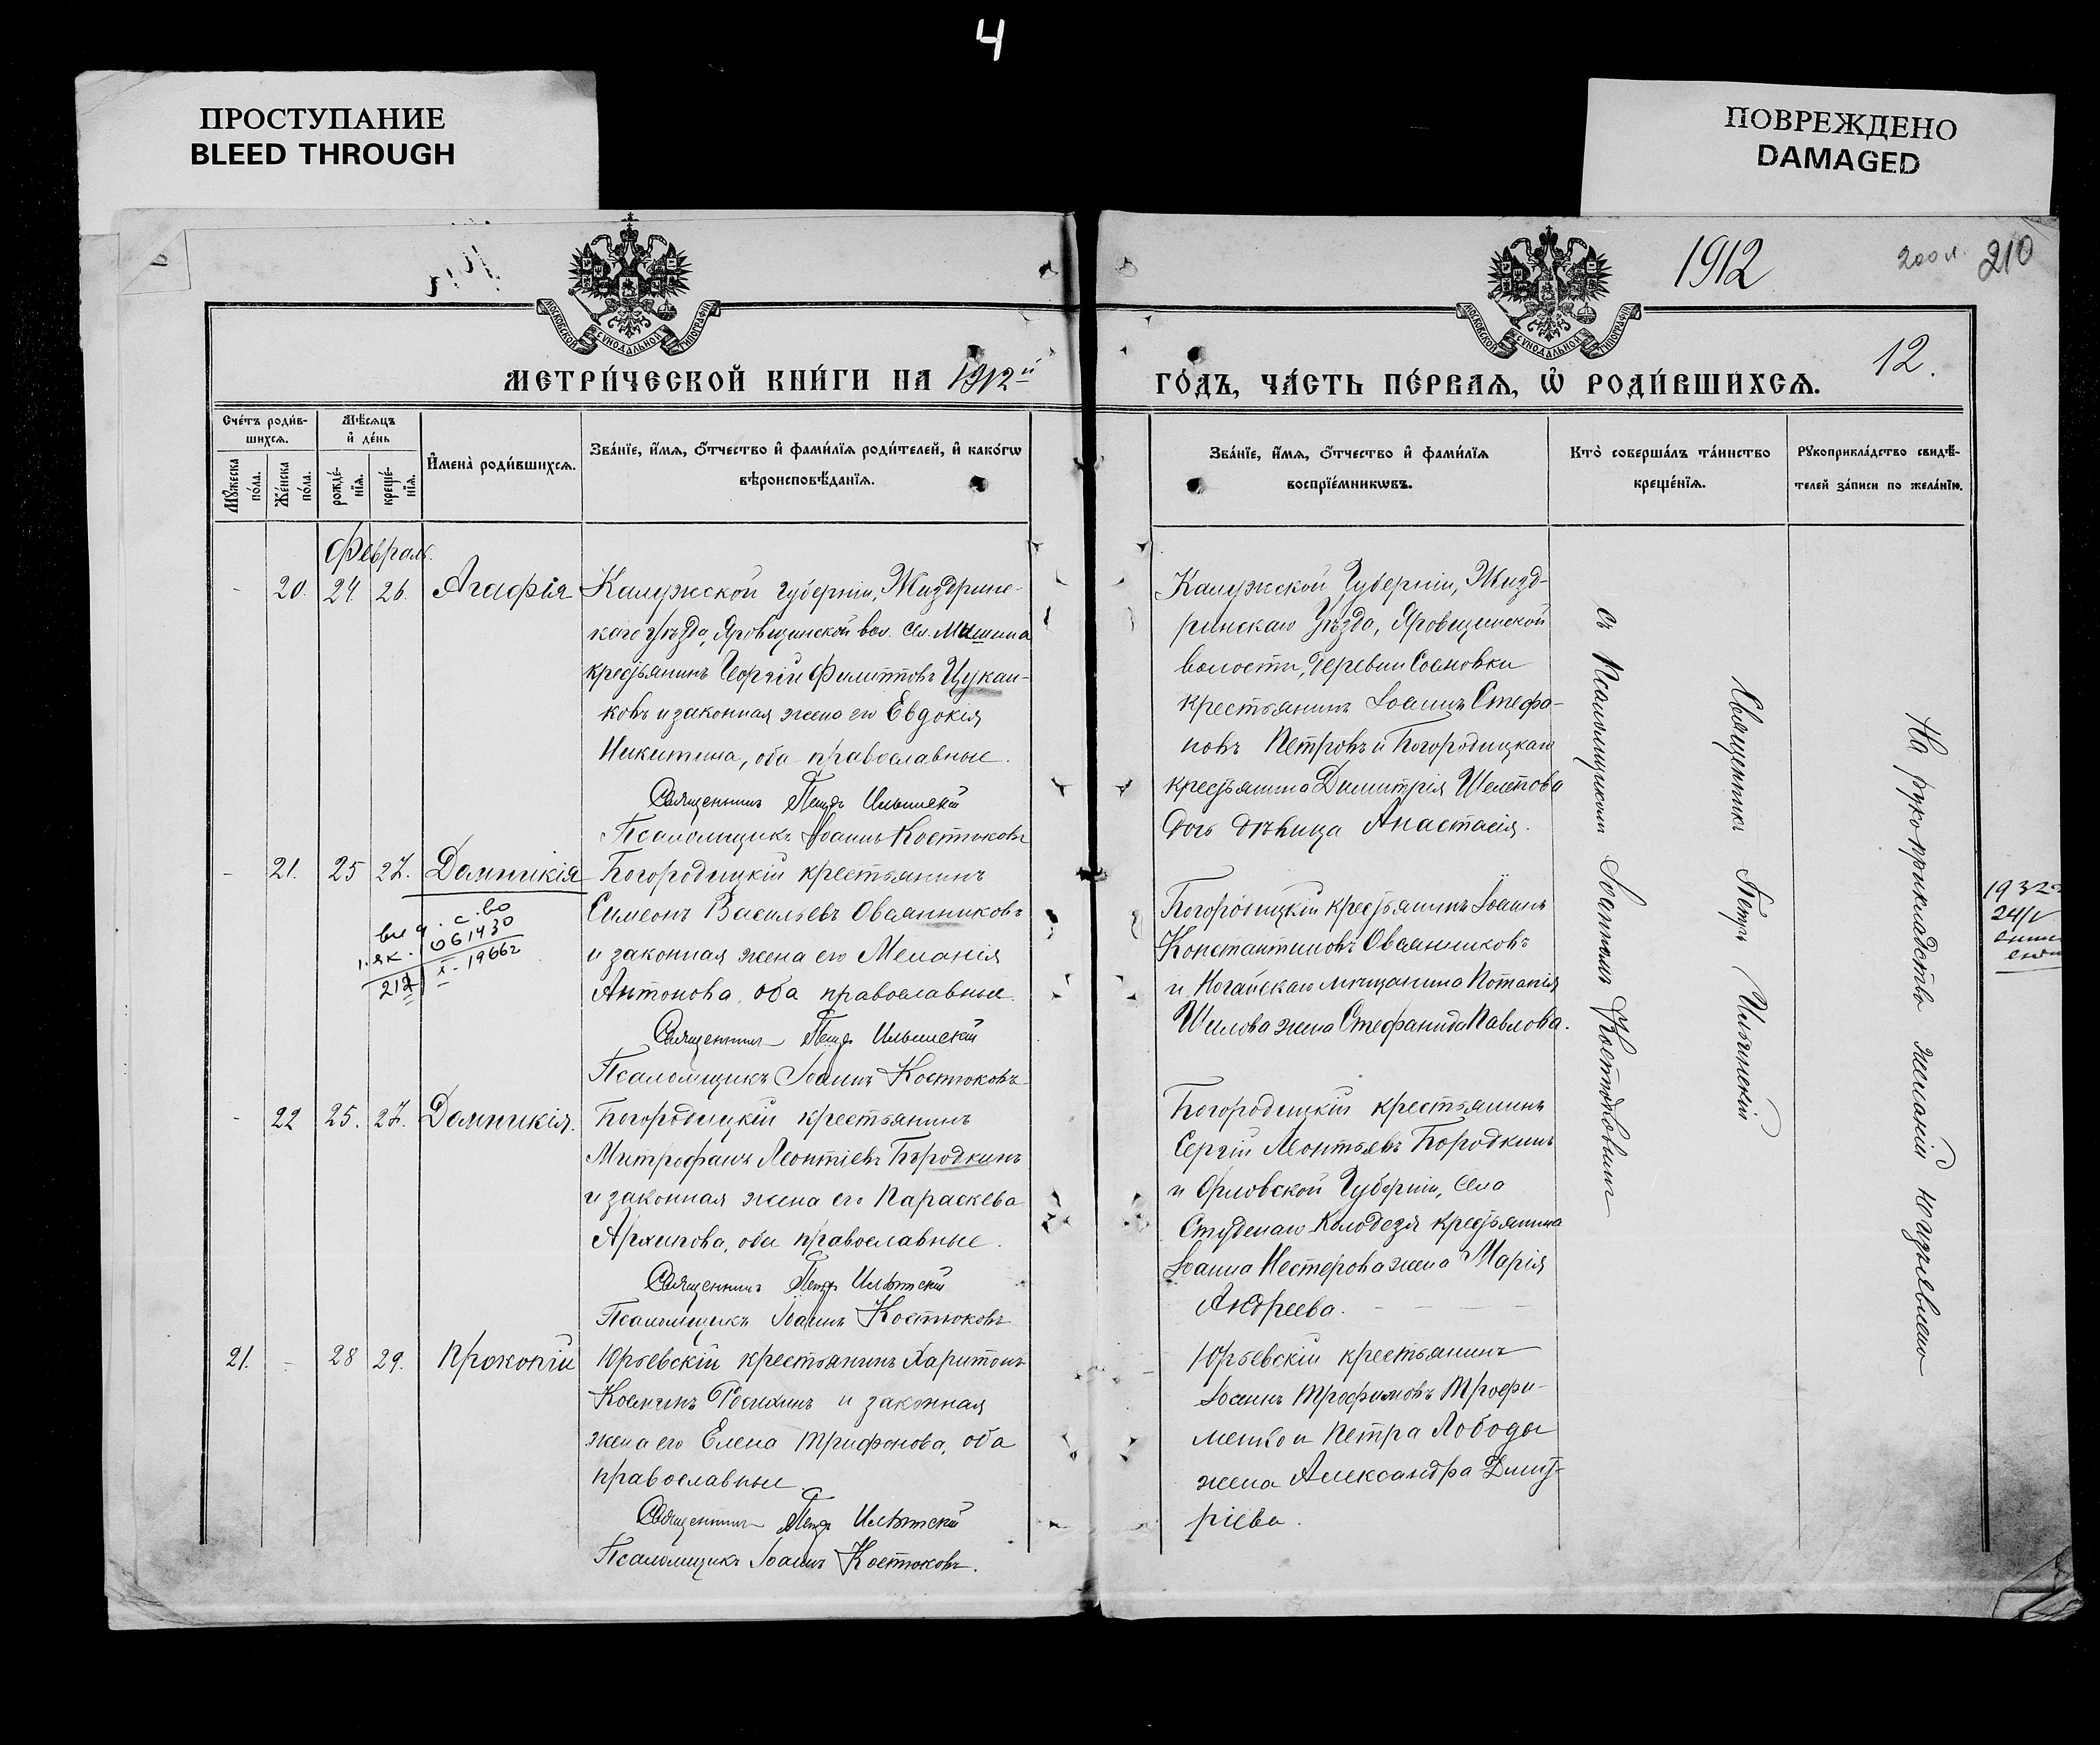 4
ПРОСТУПАНИЕ
BLEED THROUGH
ПОВРЕЖДЕНО
DAMAGED
1912
200 л.
210
МОСКОВСКОЙ СѴНОДАЛЬНОЙ ТИПОГРАФІИ
МОСКОВСКОЙ СѴНОДАЛЬНОЙ ТИПОГРАФІИ
МЕТРИ́ЧЕСКОЙ КНИ́ГИ НА 1912й
ГО́ДЪ, ЧА́СТЬ ПЕ́РВАѦ, Ѡ҆ РОДИ́ВШИХСѦ.
12.
Сче́тъ роди́в-
шихсѧ.
Мѣ́сѧцъ
и҆ де́нь
Мꙋ́жеска
по́ла.
Же́нска
по́ла.
рожде́-
нїѧ.
креще́-
нїѧ.
И҆мена̀ роди́вшихсѧ.
Зва́нїе, и҆́мѧ, ѻ҆́тчество и҆ фами́лїѧ роди́телей, и҆ како́гѡ
вѣроисповѣ́данїѧ.
Зва́нїе, и҆́мѧ, ѻ҆́тчество и҆ фами́лїѧ
воспрїе́мникѡвъ.
Кто̀ соверша́лъ та́инство
креще́нїѧ.
Рꙋкоприкла́дство свидѣ́-
телей за́писи по жела́нїю.
Февраль.
- 20. 24. 26. Агафія
Калужской губерніи, Жиздринс-
каго уѣзда, Яровщинской вол. сел. Мишина
крестьянинъ Георгій Филипповъ Цукан-
ковъ и законная жена его Евдокія
Никитина, оба православные.
Священникъ Петръ Ильинскій
Псаломщикъ Іоаннъ Костюковъ
Калужской Губерніи, Жизд-
ринскаго Уѣзда, Яровщинской
волости, деревни Сосновки
крестьянинъ Іоаннъ Стефа-
новъ Петровъ и Богородицкаго
крестьянина Димитрія Шелепова
дочь дѣвица Анастасія.
- 21. 25 27. Домникія
Богородицкій крестьянинъ
Симеонъ Васильевъ Овсянниковъ
и законная жена его Меланія
Антонова, оба православные.
Священникъ Петръ Ильинскій
Псаломщикъ Іоаннъ Костюковъ
с.во
061430
1966г
212
Богородицкій крестьянинъ Іоаннъ
Константиновъ Овсянниковъ
и Ногайскаго мѣщанина Потапія
Шилова жена Стефанида Павлова.
- 22 25. 27. Домникія.
Богородицкій крестьянинъ
Митрофанъ Леонтіевъ Бородкинъ
и законная жена его Параскева
Архипова, оба православные.
Священникъ Петръ Ильинскій
Псаломщикъ Іоаннъ Костюковъ
Богородицкій крестьянинъ
Сергій Леонтьевъ Бородкинъ
и Орловской Губерніи, села
Студенаго Колодезя крестьянина
Іоанна Нестерова жена Марія
Андреева.
21. - 28 29. Прокопій
Юрьевскій крестьянинъ Харитонъ
Косминъ и законная
жена его Елена Трифонова, оба
православные
Священникъ Петръ Ильинскій
Псаломщикъ Іоаннъ Костюковъ.
Юрьевскій крестьянинъ
Іоаннъ Трофимовъ Трофи-
менко и Петра Лободы
жена Александра Димит-
ріева.
Священникъ Петръ Ильинскій
съ Псаломщикомъ Іоанномъ Костюковымъ
На рукоприкладство желаній не изъявлено
1932
24/V